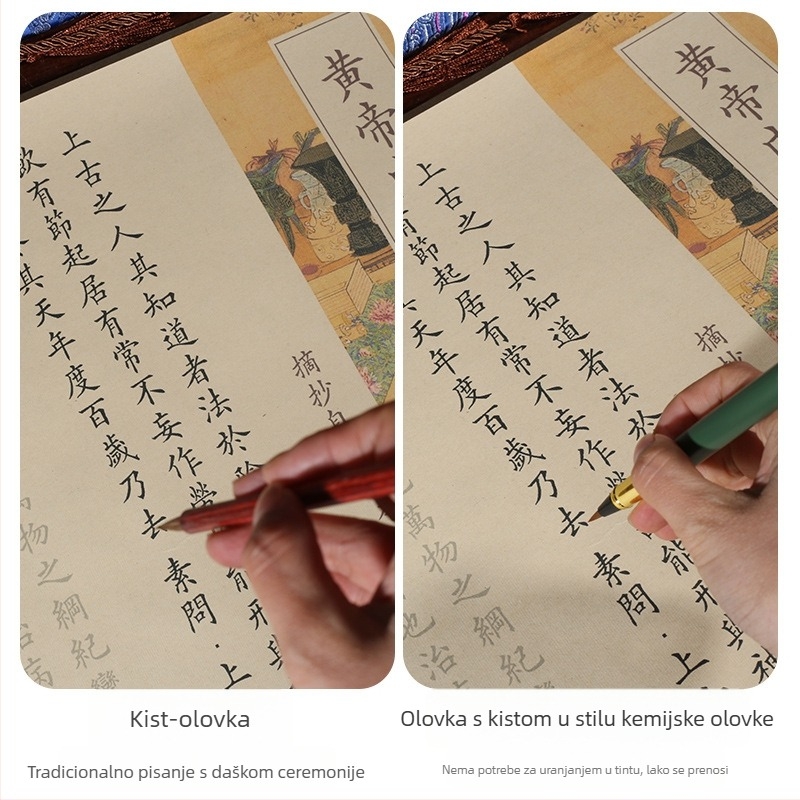 黄帝
摘抄自
上古之人其知道者法於
有節起居有常不妄作勞
能形與
其天年度百歲乃去
素問·上
物之綱紀
黄帝
摘抄
上古之人其知道者法於
節起居有常不妄作勞
能形與神
天年度百歲乃去
素問·上
萬物之綱紀
地治
Kist-olovka
Olovka s kistom u stilu kemijske olovke
Tradicionalno pisanje s daškom ceremonije
Nema potrebe za uranjanjem u tintu, lako se prenosi